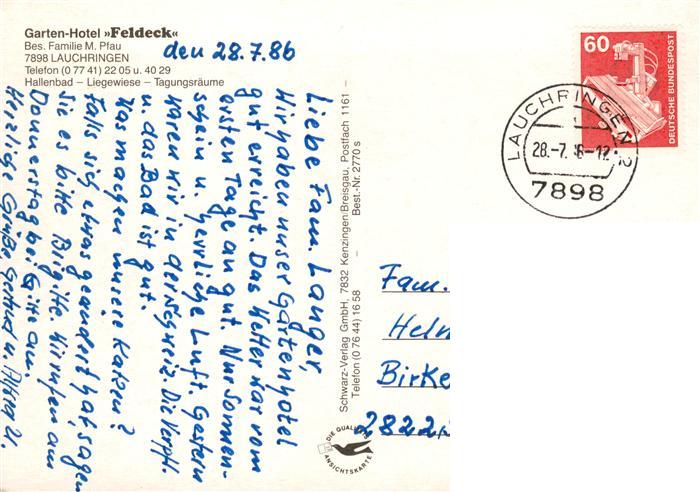 Garten-Hotel »Feldeck«
Bes. Familie M. Pfau
7898 LAUCHRINGEN
Telefon (0 77 41) 22 05 u. 40 29
Hallenbad – Liegewiese – Tagungsräume
den 28.7.86
Liebe Fam. Langer,
Wir haben unser Gartenhotel
gut erreicht. Das Wetter war vom
ersten Tage an gut. Nur Sonnen-
schein u. herrliche Luft. Gestern
waren wir in der Schweiz. Die Verpfl.
u. das Bad ist gut.
Was machen unsere Katzen?
Falls sich etwas geändert hat, sagen
sie es bitte Brigitte. Wir rufen am
Donnerstag bei Gitte an.
Herzliche Grüße, Gertrud u.
Schwarz-Verlag GmbH, 7832 Kenzingen/Breisgau, Postfach 1161 –
Telefon (0 76 44) 16 58 – Best.-Nr. 2770 s
DIE QUALITÄTS
ANSICHTSKARTE
60
DEUTSCHE BUNDESPOST
LAUCHRINGEN 2
28.-7. 6-12
7898
Fam.
Helm
Birke
2822